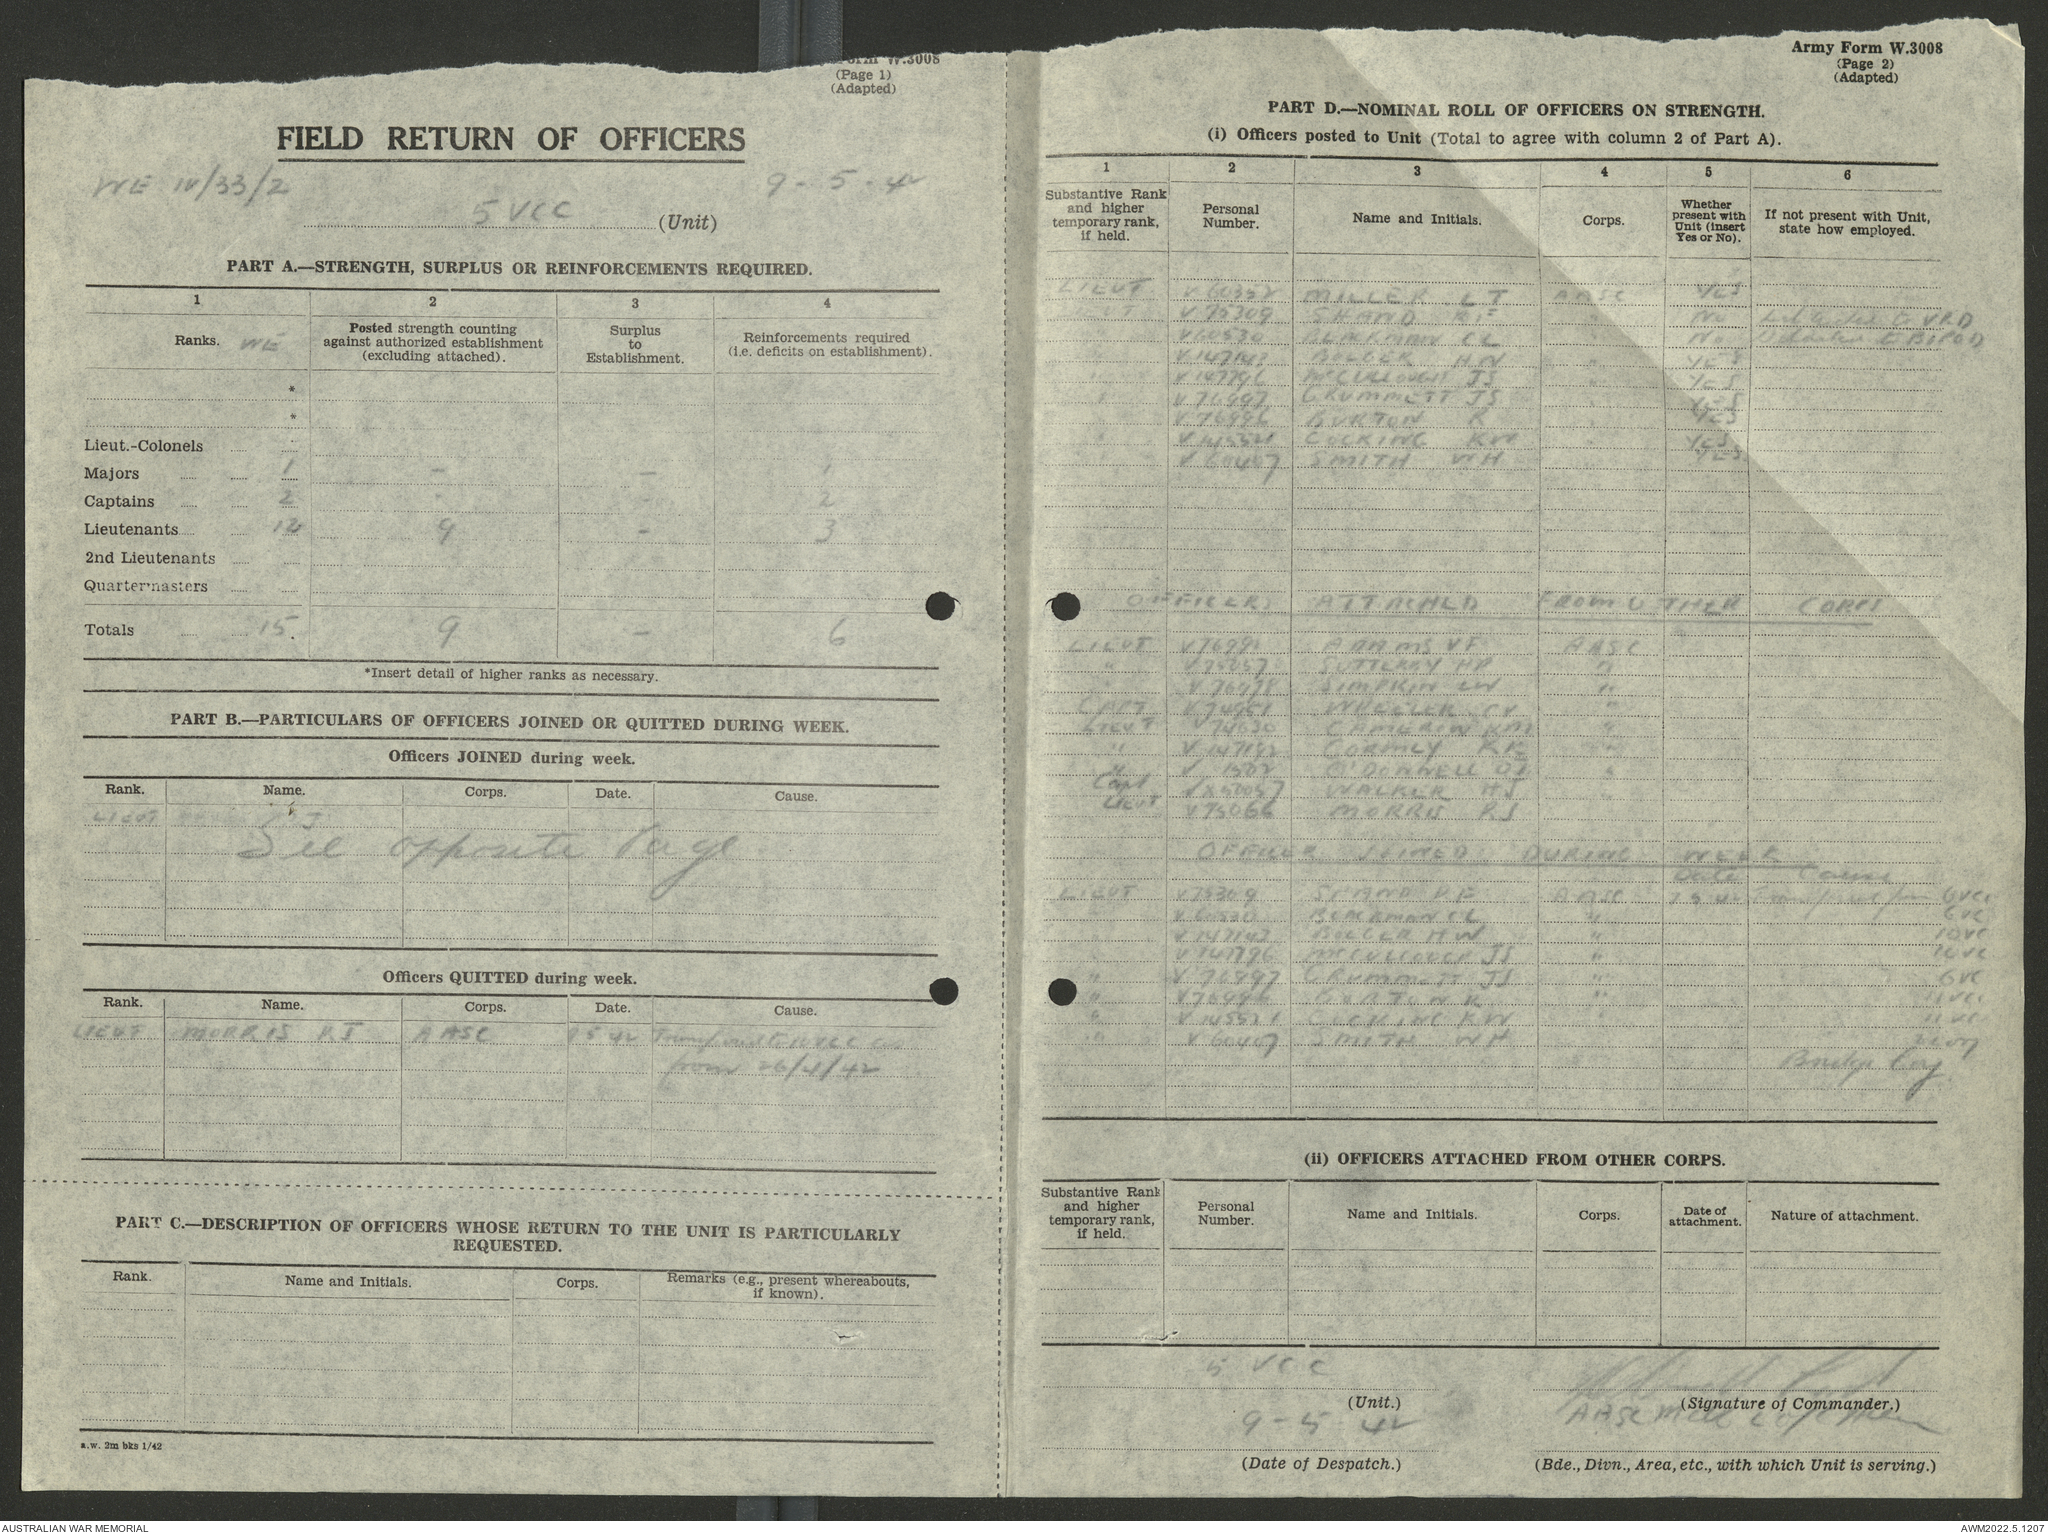 Form W.3008
(Page 1)
(Adapted)
FIELD RETURN OF OFFICERS
WE IV/33/2
9 - 5 - 42
5 VCC (Unit)
PART A.—STRENGTH, SURPLUS OR REINFORCEMENTS REQUIRED.
1 2 3 4
Ranks. WE
Posted strength counting against authorized establishment (excluding attached).
Surplus to Establishment.
Reinforcements required (i.e. deficits on establishment).
*
*
Lieut.-Colonels
Majors 1 - - 1
Captains 2 - - 2
Lieutenants 12 9 - 3
2nd Lieutenants
Quartermasters
Totals 15. 9 - 6
*Insert detail of higher ranks as necessary.
PART B.—PARTICULARS OF OFFICERS JOINED OR QUITTED DURING WEEK.
Officers JOINED during week.
Rank. Name. Corps. Date. Cause.
LIEUT
See opposite Page
Officers QUITTED during week.
Rank. Name. Corps. Date. Cause.
LIEUT MORRIS RJ AASC 9 5 42
from 26/4/42
PART C.—DESCRIPTION OF OFFICERS WHOSE RETURN TO THE UNIT IS PARTICULARLY
REQUESTED.
Rank. Name and Initials. Corps. Remarks (e.g., present whereabouts, if known).
a.w. 2m bks 1/42
Army Form W.3008
(Page 2)
(Adapted)
PART D.—NOMINAL ROLL OF OFFICERS ON STRENGTH.
(i) Officers posted to Unit (Total to agree with column 2 of Part A).
1 2 3 4 5 6
Substantive Rank and higher temporary rank, if held.
Personal Number.
Name and Initials.
Corps.
Whether present with Unit (insert Yes or No).
If not present with Unit, state how employed.
LIEUT V60352 MILLER LT AASC YES
" V75309 SHAND RE " No
" V60530 BLACKMAN CL " No
" V147143 BOLGER HW " YES
" V147796 McCULLOUGH JS " YES
" V76997 CRUMMETT JS " YES
" V76996 BURTON R " YES
" V145521 COCKING KW " YES
" V60407 SMITH WH YES
OFFICERS ATTACHED FROM OTHER CORPS
LIEUT ADAMS VF AASC
" SUTTERBY HP "
" V76978 SIMPKIN LW "
CAPT V74951 WHEELER CV "
LIEUT V74630 CAMERON KM "
" GORMLY KK "
" O'DONNELL "
Capt WALKER HJ
LIEUT V75066 MORRIS RJ
OFFICER JOINED DURING WEEK
Date Cause
LIEUT V75309 SHAND RE AASC 7 5 42 Transferred from 6 VCC
" V60530 BLACKMAN CL " 6 VC
" V147143 BOLGER HW " 10 VC
" V147796 McCULLOUGH JS "
" V76997 CRUMMETT JS " 6 VC
" V76996 BURTON R " 11 VCC
" V145521 COCKING KW 11 VC
" V60407 SMITH WH
Bridge Coy
(ii) OFFICERS ATTACHED FROM OTHER CORPS.
Substantive Rank and higher temporary rank, if held.
Personal Number.
Name and Initials.
Corps.
Date of attachment.
Nature of attachment.
5 VCC
(Unit.)
(Signature of Commander.)
9 - 5 42
AASC
(Date of Despatch.)
(Bde., Divn., Area, etc., with which Unit is serving.)
AUSTRALIAN WAR MEMORIAL
AWM2022.5.1207